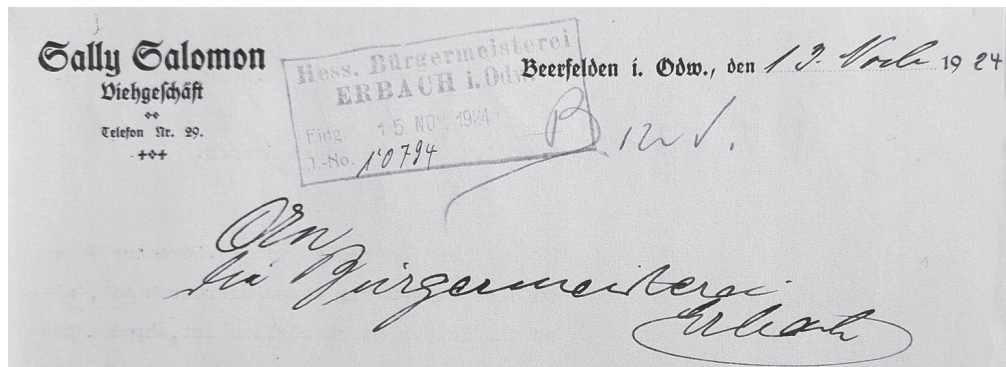 Sally Salomon
Viehgeschäft
Telefon Nr. 29.
Hess. Bürgermeisterei
ERBACH i. Odw.
Eing. 15. NOV. 1924
J.-No. 10794
Beerfelden i. Odw., den 13. Novb 1924
An
die Bürgermeisterei
Erbach